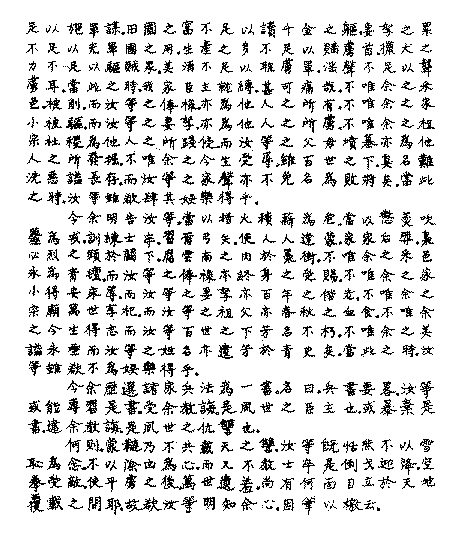 足以施軍謀.田園之富不足以贖千金之軀.妻孥之累
不足以充軍國之用.生產之多不足以購虜首.獵犬之
力不足以驅賊眾.美酒不足以耽虜軍.淫聲不足以聾
虜耳.當此之時.我家臣主就縛.甚可痛哉.不唯余之采
邑被削.而汝等之俸祿亦為他人之所有.不唯余之家
小被驅.而汝等之妻孥亦為他人之所虜.不唯余之祖
宗社稷為他人之所踐侵.而汝等之父母墳墓亦為他
人之所發掘.不唯余之今生受辱.雖百世之下.臭名難
洗.惡謚長存.而汝等之家聲亦不免名為敗將矣.當此
之時.汝等雖欲肆其娛樂得乎.
今余明告汝等.當以措火積薪為危.當以懲羹吹
虀為戒.訓練士卒.習爾弓矢.使人人逄蒙.家家后羿.裊
必烈之頭於闕下.腐雲南之肉於藁街.不唯余之采邑
永為青氈.而汝等之俸祿亦終身之受賜.不唯余之家
小得安床蓐.而汝等之妻孥亦百年之偕老.不唯余之
宗廟萬世享祀.而汝等之祖父亦春秋之血食.不唯余
之今生得志.而汝等百世之下芳名不朽.不唯余之美
謚永垂.而汝等之姓名亦遺芳於青史矣.當此之時.汝
等雖欲不為娛樂得乎.
今余歷選諸家兵法為一書.名曰.兵書要畧.汝等
或能專習是書.受余教誨.是夙世之臣主也.或暴棄是
書.違余教誨.是夙世之仇讐也.
何則.蒙韃乃不共戴天之讐.汝等既恬然不以雪
恥為念.不以除凶為心.而又不教士卒.是倒戈迎降.空
拳受敵.使平虜之後.萬世遺羞.尚有何面目立於天地
覆載之間耶.故欲汝等明知余心.因筆以檄云.